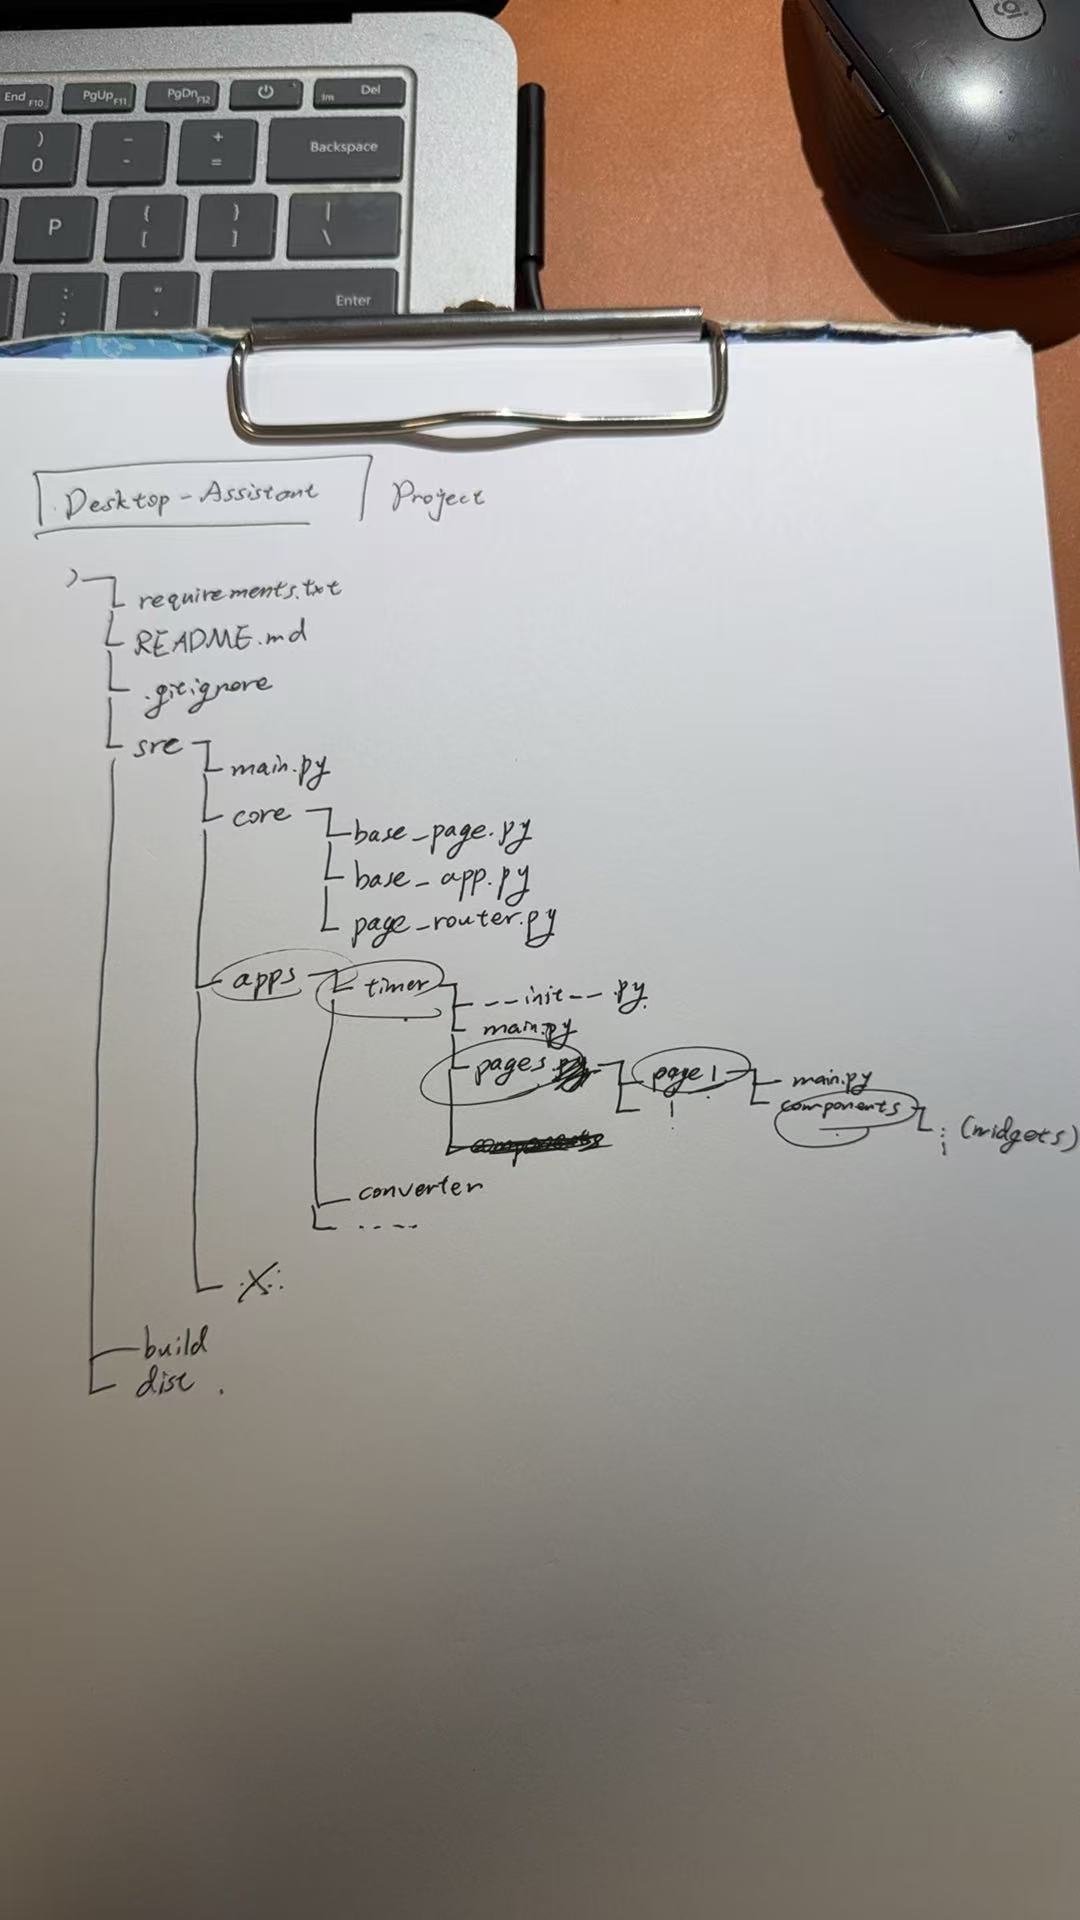 End F10 PgUp F11 PgDn F12 Im Del
) 0 - - + = Backspace
P { [ } ] | \
: ; " ' Enter
Desktop-Assistant Project
requirements.txt
README.md
.gitignore
src
main.py
core
base_page.py
base_app.py
page_router.py
apps timer
__init__.py
main.py
pages page 1 main.py
components
(widgets)
converter
.....
build
dist.